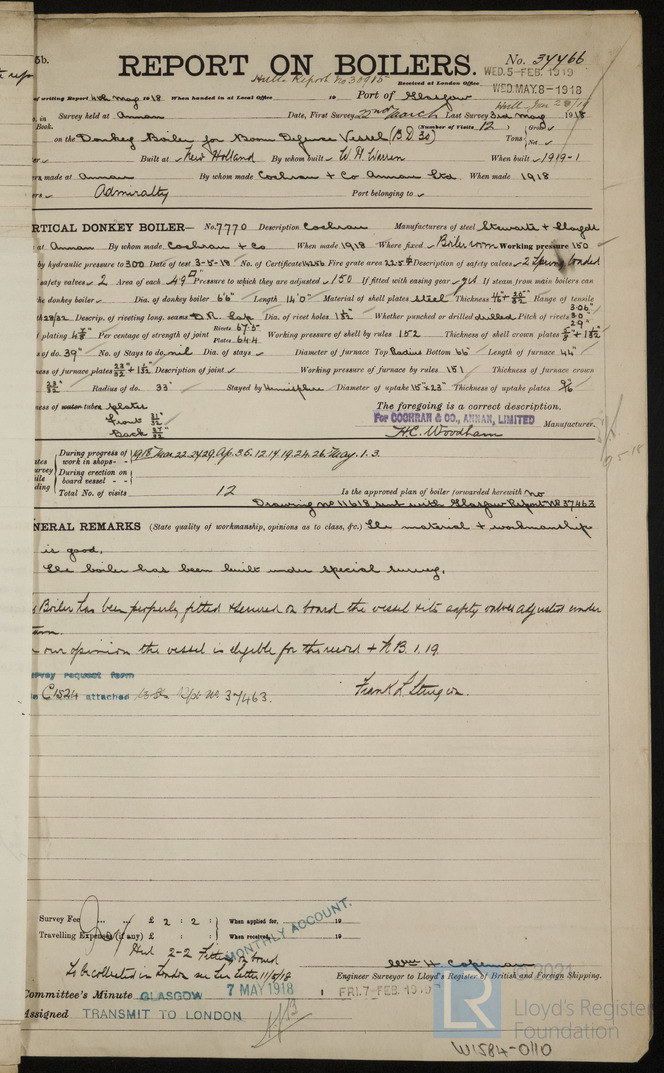 5b.
REPORT ON BOILERS.
No. 37466
Hull Report No
Received at London Office
WED. 5-FEB. 1919
WED. MAY. 8-1918
of writing Report 4th May 1918 When handed in at Local Office 19 Port of Glasgow
in Survey held at Annan Date, First Survey 22nd March Last Survey 3rd May 1918
Book. (Number of Visits 12)
on the Donkey Boiler for Boom Defense Vessel (B.D. 30) Tons
Built at New Holland By whom built W. H. Warren When built 1919-1
made at Annan By whom made Cochran & Co Annan Ltd When made 1918
Admiralty Port belonging to
RTICAL DONKEY BOILER— No. 7770 Description Cochran Manufacturers of steel Stewarts & Lloyds
at Annan By whom made Cochran & Co When made 1918 Where fixed Boiler room Working pressure 150
by hydraulic pressure to 300 Date of test 3-5-18 No. of Certificate 14256 Fire grate area 22.5 Description of safety valves 2 Spring loaded
safety valves 2 Area of each Pressure to which they are adjusted 150 If fitted with easing gear yes If steam from main boilers can
he donkey boiler Dia. of donkey boiler 6'6" Length 14'0" Material of shell plates steel Thickness Range of tensile
th 28/32 Descrip. of riveting long. seams D.R. Lap Dia. of rivet holes Whether punched or drilled drilled Pitch of rivets
plating Per centage of strength of joint Rivets 67.5 Plates 64.4 Working pressure of shell by rules 152 Thickness of shell crown plates
s of do. 39" No. of Stays to do. nil Dia. of stays Diameter of furnace Top Radius Bottom 66" Length of furnace 44"
ness of furnace plates Description of joint Working pressure of furnace by rules 151 Thickness of furnace crown
Radius of do. 33" Stayed by Hemisphere Diameter of uptake 15" x 23" Thickness of uptake plates 9/16
ness of water tubes plates
Front 31/32"
Back 27/32"
The foregoing is a correct description,
For COCHRAN & CO., ANNAN, LIMITED Manufacturer.
H.C. Woodham
During progress of work in shops - - 1918 Mar. 22.24.29. Ap. 3.5.12.17.19.24.26. May. 1.3.
During erection on board vessel - - -
Total No. of visits 12
Is the approved plan of boiler forwarded herewith No
Drawing No 11618 sent with Glasgow Report No 37463
NERAL REMARKS (State quality of workmanship, opinions as to class, &c.) The material & workmanship
is good.
The boiler has been built under special survey.
Boiler has been properly fitted & secured on board the vessel & its safety valves adjusted under
our opinion the vessel is eligible for the record + N.B. 1.19.
rvey request form
C1524 attached Rpt No. 37463.
Frank L. Sturgeon.
Survey Fee ... ... £ 2 : 2 : When applied for, 19
Travelling Expenses (if any) £ : : When received, 19
MONTHLY ACCOUNT.
Hull 2-2 Fitting on board
To be collected in London see letter 11/5/18
Wm H. Copeman
Engineer Surveyor to Lloyd's Register of British and Foreign Shipping.
Committee's Minute GLASGOW 7 MAY 1918 FRI. 7-FEB. 1919
Assigned TRANSMIT TO LONDON
2021
LR
Lloyd's Register
Foundation
W1584-0110